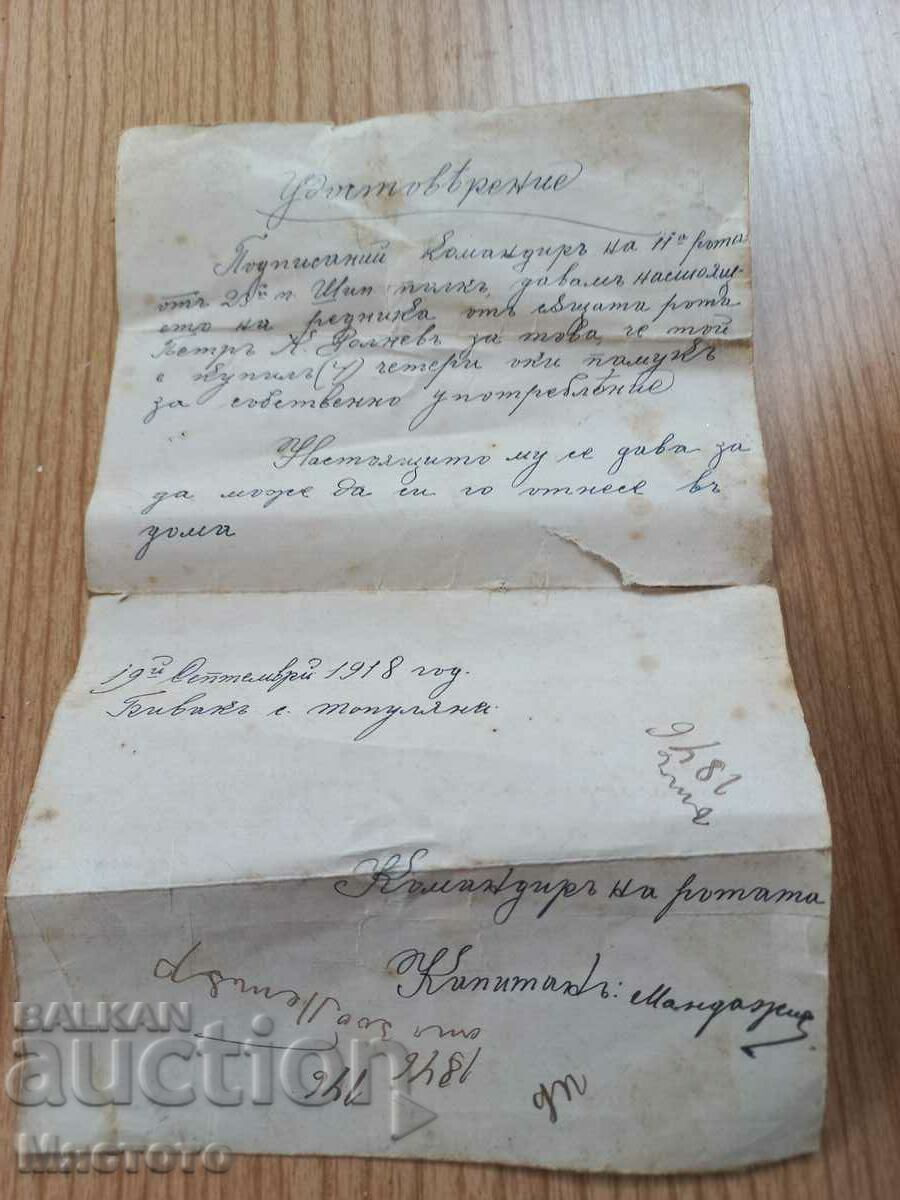 Удостовѣрение
Подписаний Командиръ на 11а рота
отъ 23й п. Шип. пълкъ, давамъ настоящ-
ето на редника отъ сѫщата рота
Петръ К. за това, че той
е купилъ (4) четери оки памукъ
за собственно употрѣбление
Настоящито му се дава за
да може да си го отнесе въ
дома
19й Септемврй 1918 год.
Бивакъ с. Топуляни
1846
Командиръ на ротата
Капитанъ:
1846
146
BALKAN
auction
Мистото